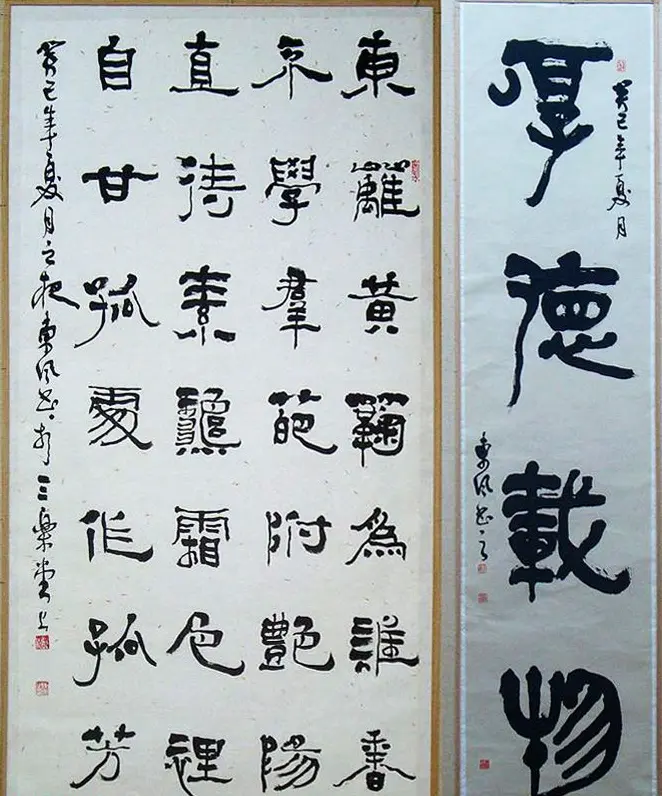 厚德載物
癸巳年夏月
東風書之
東籬黃蘜為誰香
不學羣葩附艷陽
直待素龝霜色裡
自甘孤處作孤芳
癸巳年夏月之夜東風書於三樂堂上